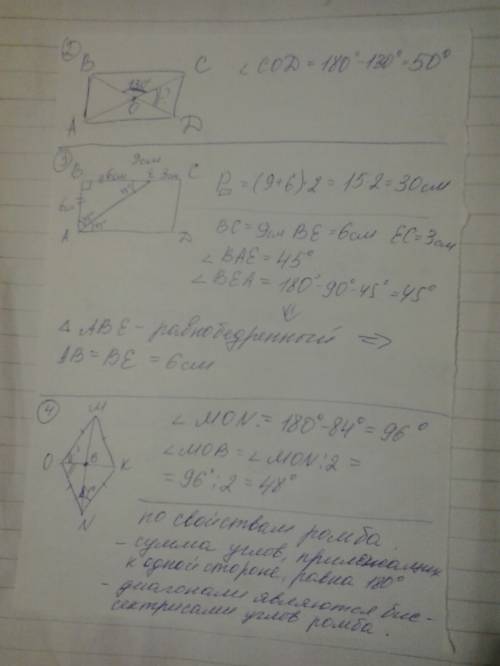 2
B C
130°
O
A D
∠COD = 180° - 130° = 50°
3
9см
B 6см E 3см C
6см
45°
A D
P = (9+6)·2 = 15·2 = 30см
BC = 9см BE = 6см EC = 3см
∠BAE = 45°
∠BEA = 180° - 90° - 45° = 45°
⇓
△ABE - равнобедренный ⇒
AB = BE = 6см
4
M
O B K
N
∠MON = 180° - 84° = 96°
∠MOB = ∠MON : 2 =
= 96° : 2 = 48°
по свойствам ромба.
- сумма углов, прилежащих
к одной стороне, равна 180°
- диагонали являются бис-
сектрисами углов ромба.